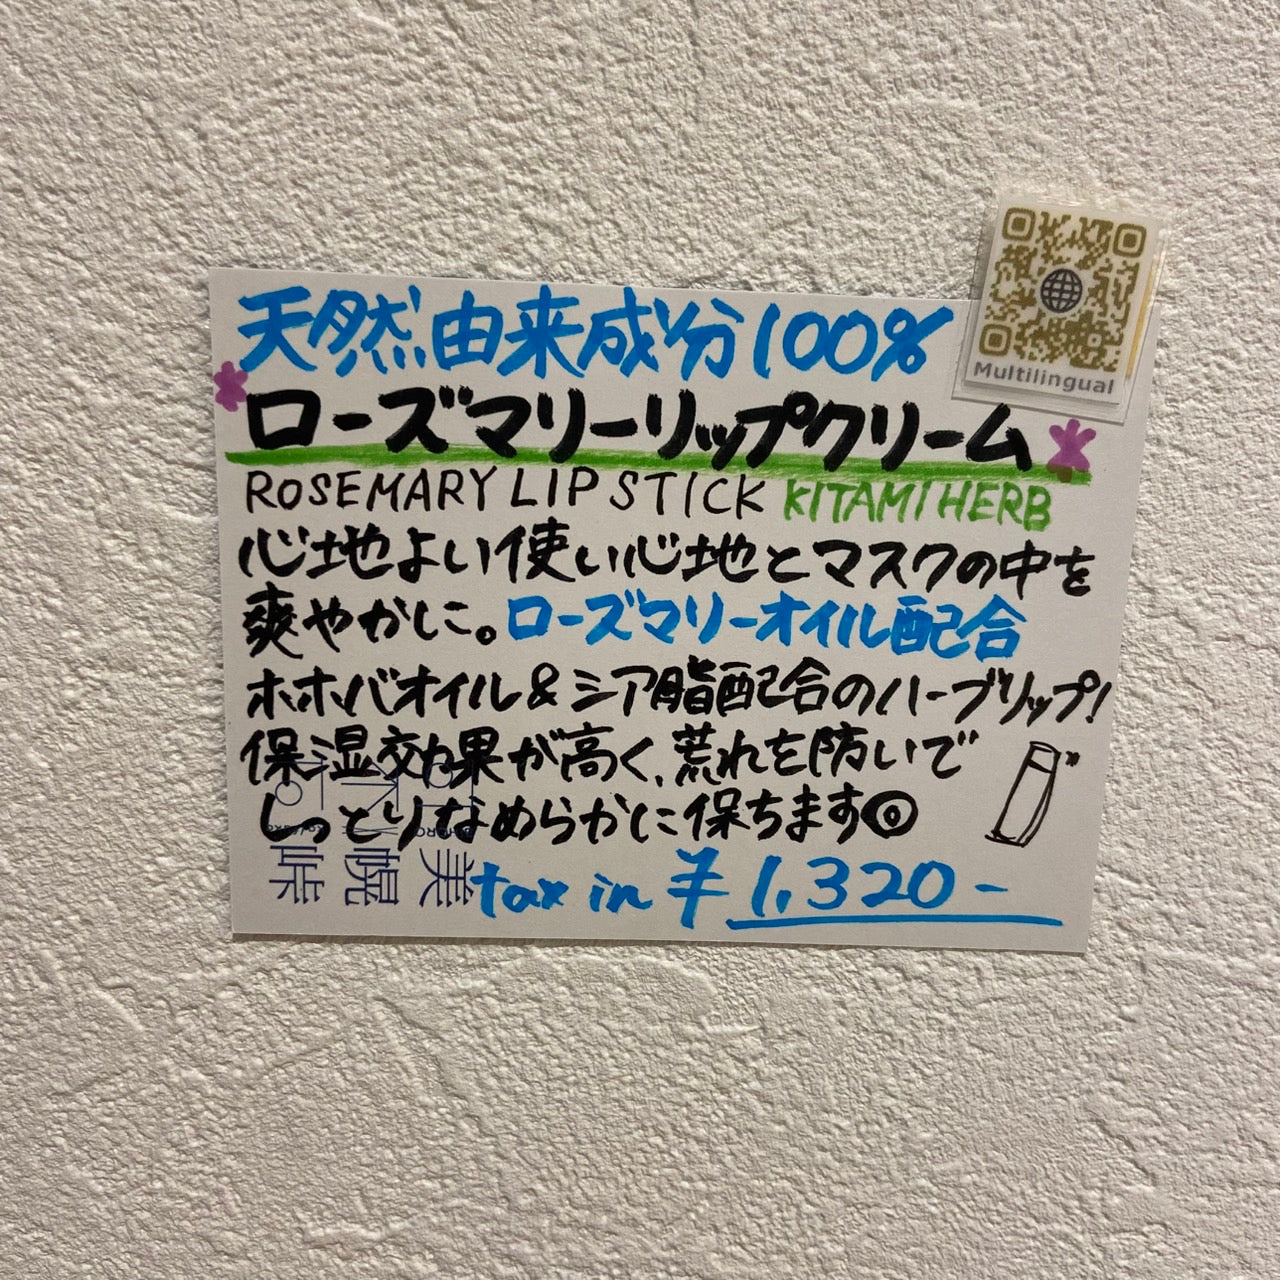 天然由来成分100%
ローズマリーリップクリーム
ROSEMARY LIP STICK KITAMI HERB
心地よい使い心地とマスクの中を
爽やかに。ローズマリーオイル配合
ホホバオイル&シア脂配合のハーブリップ!
保湿効果が高く、荒れを防いで
しっとりなめらかに保ちます
tax in ¥1,320-
美幌峠
Multilingual